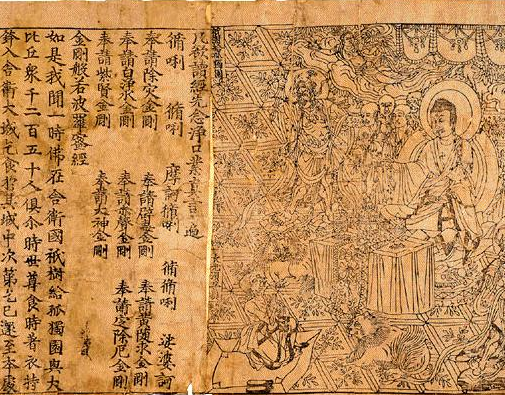 凡欲讀經先念淨口業真言一遍
脩唎 脩唎 摩訶脩唎 脩脩唎 娑婆訶
奉請除灾金剛 奉請辟毒金剛 奉請黄随求金剛
奉請白淨水金剛 奉請赤聲金剛 奉請定除厄金剛
奉請紫賢金剛 奉請大神金剛
金剛般若波羅蜜經
如是我聞一時佛在舍衛國祇樹給孤獨園與大
比丘衆千二百五十人俱尒時世尊食時著衣持
鉢入舍衛大城乞食於其城中次第乞已還至本處